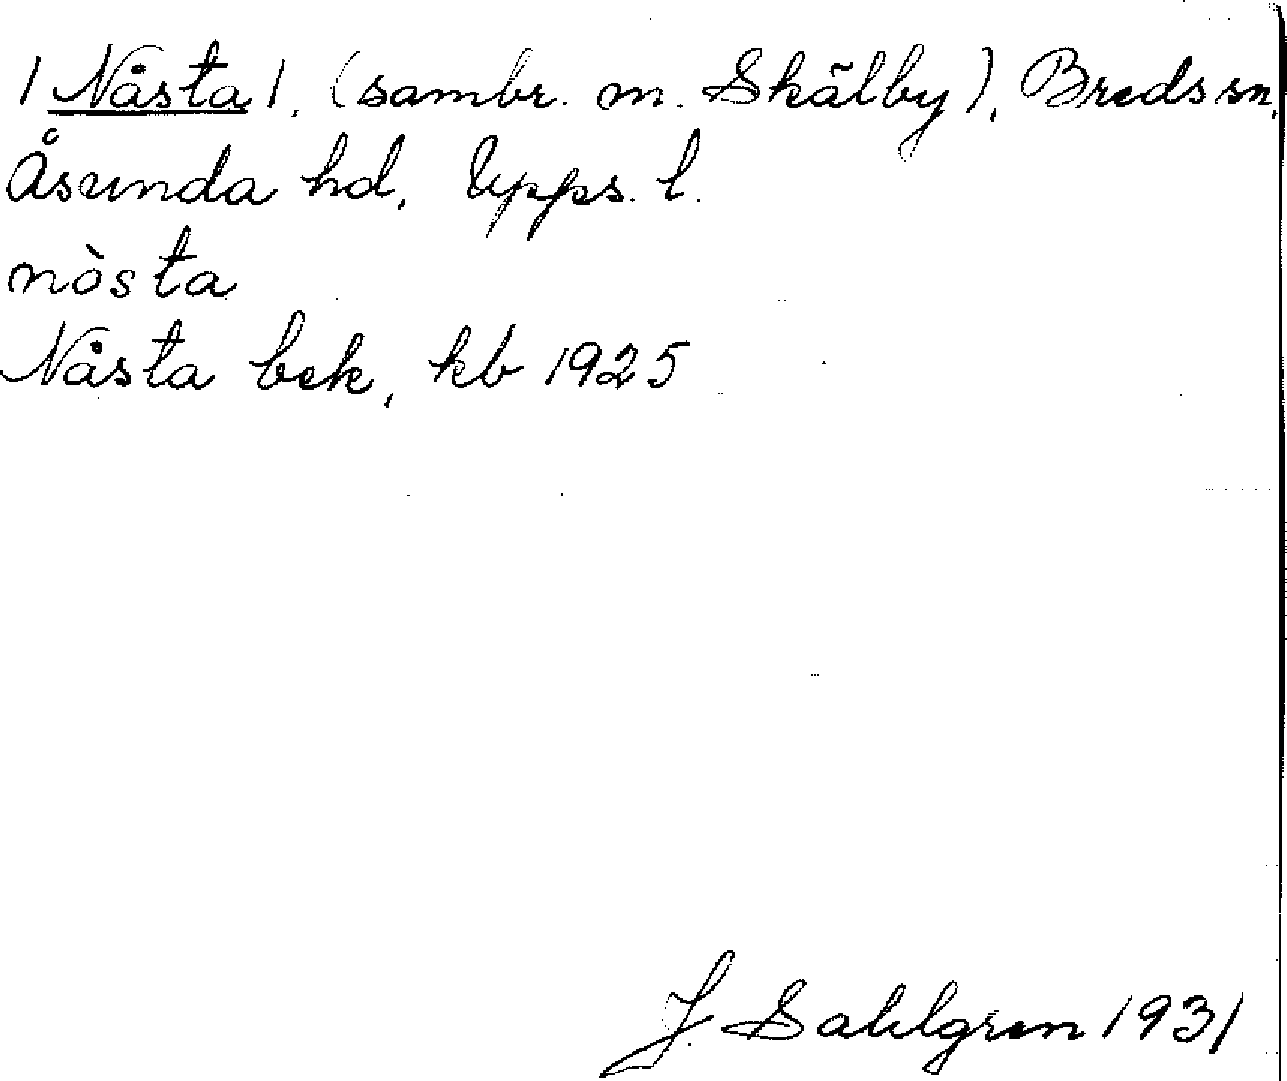 / Nåsta /, (sambr. m. Skälby), Breds sn,
Åsunda hd, Upps. l.
nòsta
Nåsta bek, kb 1925
J. Sahlgren 1931